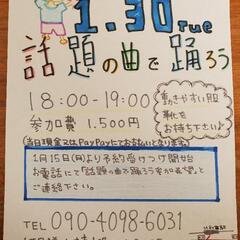 1.30 Tue
話題の曲で踊ろう
18:00-19:00
参加費 1.500円
動きやすい服
靴を
お持ち下さい♪
(当日現金又はPayPayにてお支払いとなります。)
1月15日(月)より予約受けつけ開始
お電話にて「話題の曲で踊ろう会が希望」と
ご連絡下さい。
TEL 090-4098-6031